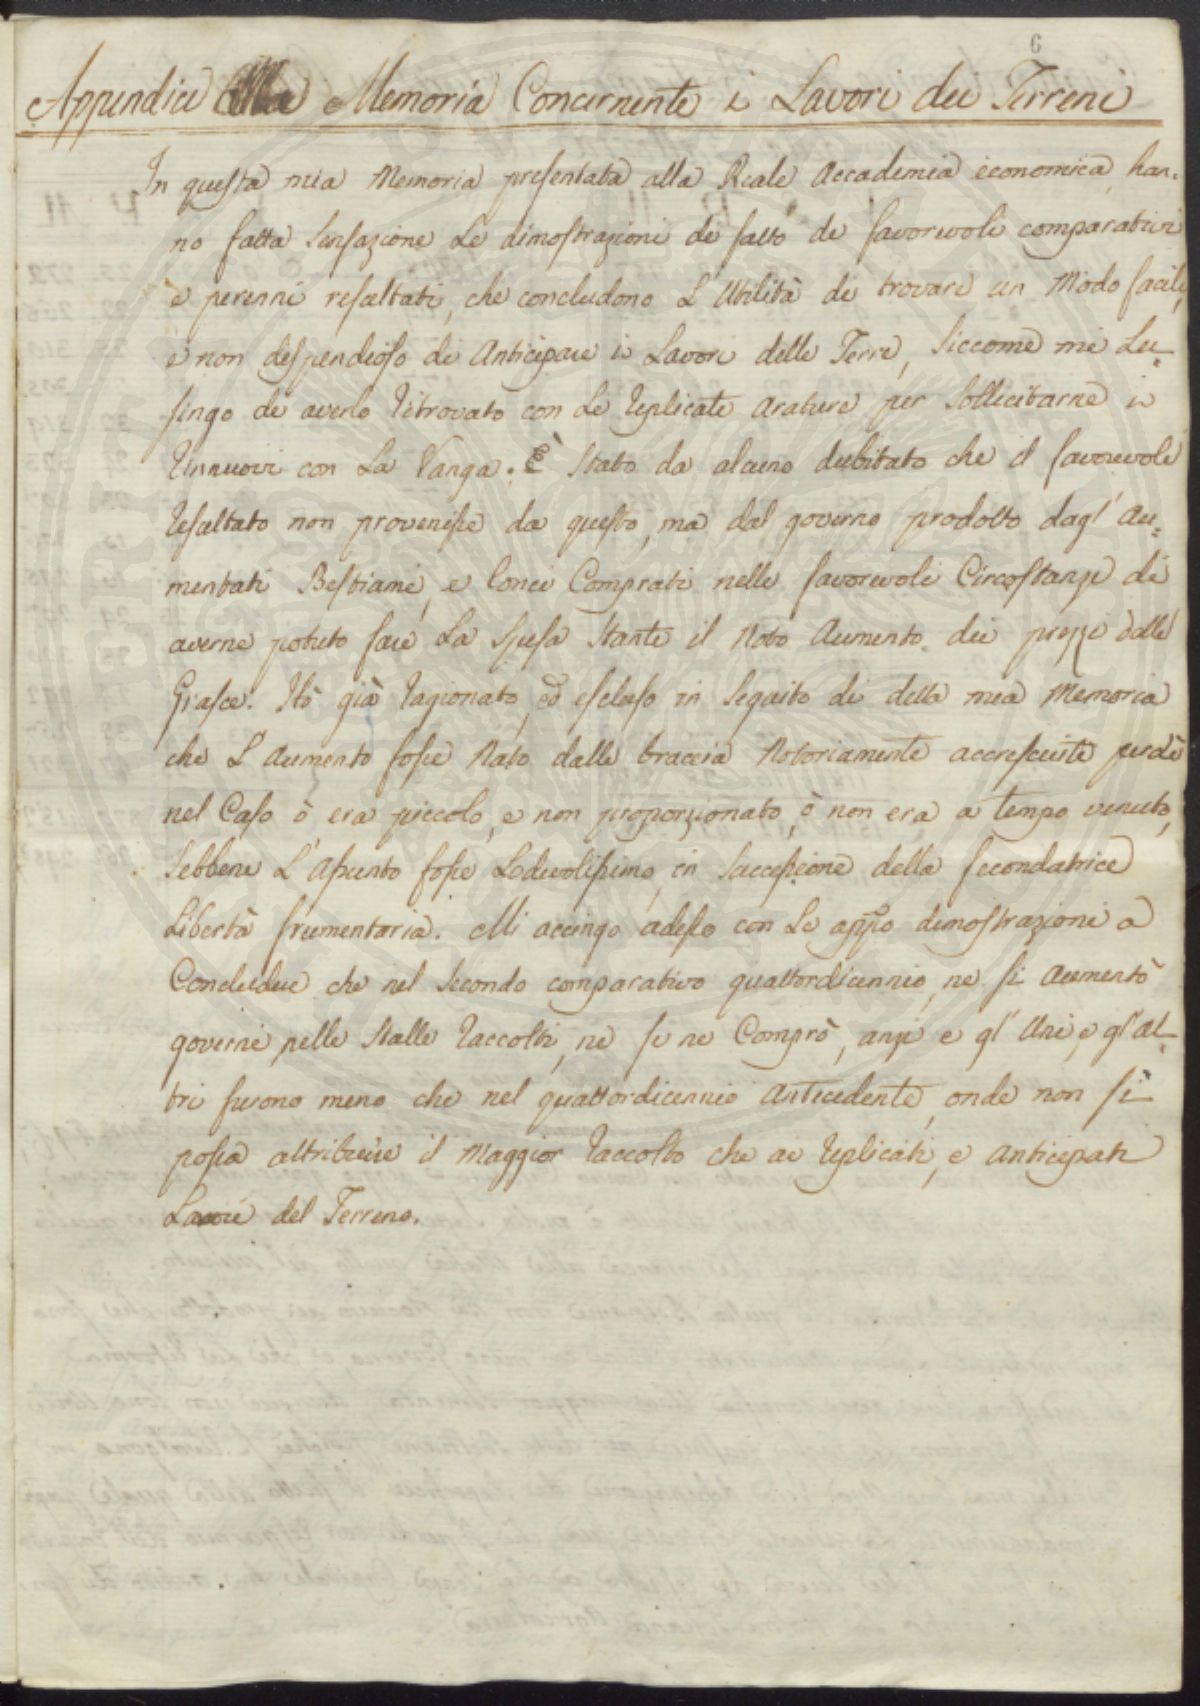 6
Appendice alla Memoria Concernente i Lavori dei Terreni
In questa mia Memoria presentata alla Reale Accademia economica, han-
no fatta sensazione Le dimostrazioni di fatto de favorevoli comparativi
e perenni resultati, che concludono L'Utilità di trovare un Modo facile,
e non dispendioso di Anticipare i Lavori delle Terre, siccome mi Lu-
singo di averlo ritrovato con Le replicate arature per sollecitarne i
rinnuovi con La Vanga. È stato da alcuno dubitato che il favorevole
resultato non provenisse da questo, ma dal governo prodotto dagl'Au-
mentati Bestiami, e Conci Comprati nelle favorevoli Circostanze di
averne potuto fare La spesa stante il Noto Aumento dei prezzi delle
Grasce. Hò già ragionato, ed escluso in seguito di detta mia Memoria
che L'Aumento fosse Nato dalle braccia Notoriamente accresciute perchè
nel Caso ò era piccolo, e non proporzionato, ò non era a tempo venuto,
sebbene L'Assunto fosse Lodevolissimo in successione della fecondatrice
Libertà frumentaria. Mi accingo adesso con Le appo dimostrazioni a
Concludere che nel secondo comparativo quattordicennio, ne si Aumentò
governi nelle stalle raccolti, ne se ne Comprò, anzi e gl'Uni, e gl'al-
tri furono meno che nel quattordicennio Antecedente, onde non si
possa attribuire il Maggior raccolto che ai replicati, e anticipati
Lavori del Terreno.